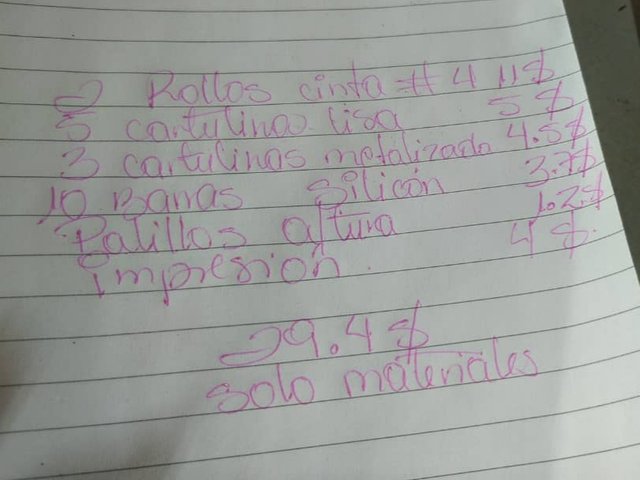 2 Rollos cinta # 4 11$
5 cartulinas lisa 5 $
3 cartulinas metalizado 4.5$
10 Barras Silicón 3.7$
Palillos altura 1.2$
impresión. 4 $.
29.4 $
solo materiales